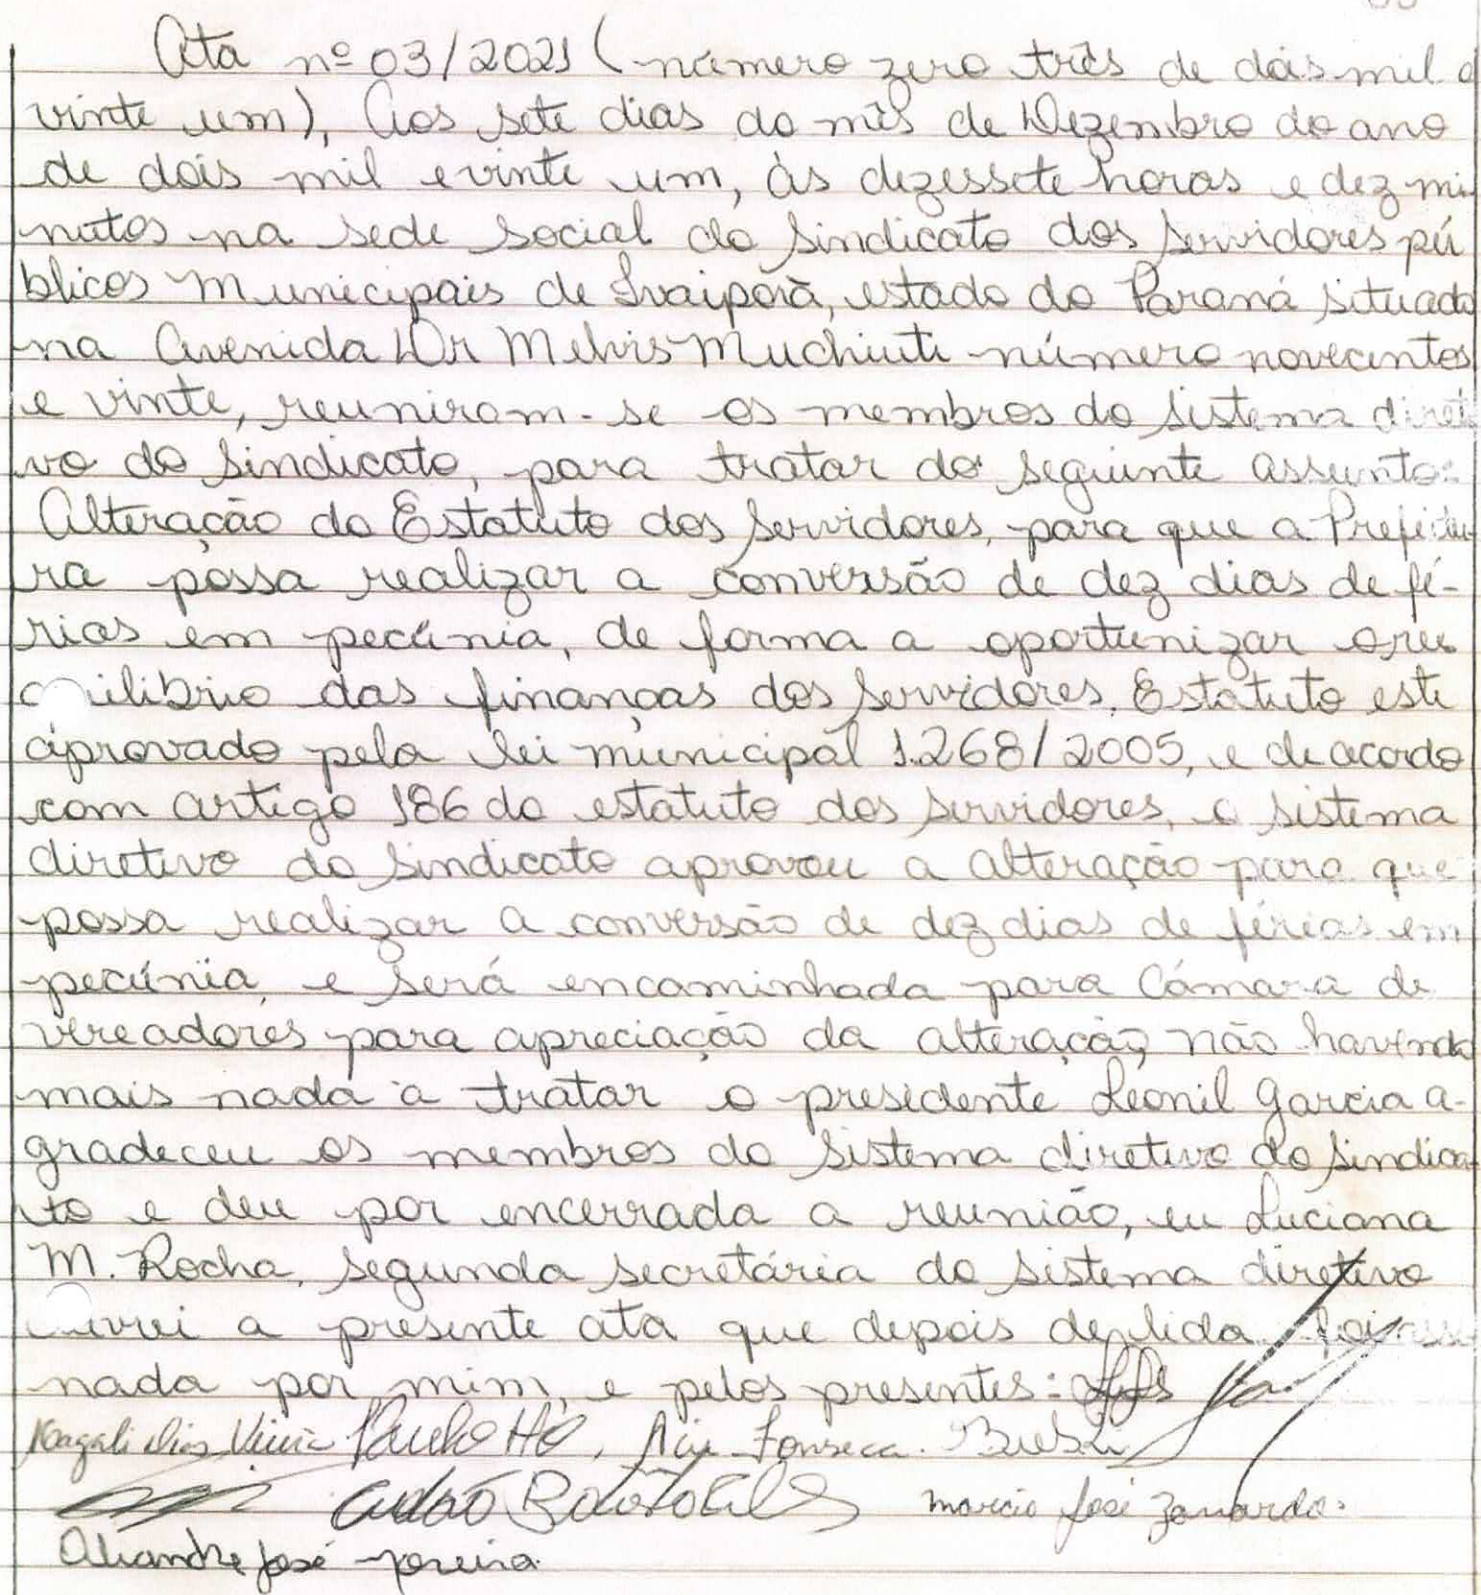 Ata nº 03/2021 (número zero três de dois mil e
vinte um), Aos sete dias do mês de Dezembro do ano
de dois mil e vinte um, às dezessete horas e dez mi
nutos na sede social do Sindicato dos Servidores pú
blicos Municipais de Ivaiporã, estado do Paraná situado
na Avenida Dr Melvis Muchiuti número novecentos
e vinte, reuniram-se os membros do sistema direti
vo do Sindicato, para tratar do seguinte assunto:
Alteração do Estatuto dos Servidores, para que a Prefeitu
ra possa realizar a conversão de dez dias de fé-
rias em pecúnia, de forma a oportunizar o
ilibrio das finanças dos Servidores, Estatuto este
aprovado pela lei municipal 1.268/2005, e de acordo
com artigo 186 do estatuto dos servidores, o sistema
diretivo do Sindicato aprovou a alteração para que
possa realizar a conversão de dez dias de férias em
pecúnia, e será encaminhada para Câmara de
vereadores para apreciação da alteração, não havendo
mais nada a tratar o presidente Leonil Garcia a-
gradeceu os membros do Sistema diretivo do Sindica
to e deu por encerrada a reunião, eu Luciana
M. Rocha, segunda secretária do sistema diretivo
a presente ata que depois de lida foi assi
nada por mim, e pelos presentes:
Magali Dias Vieira Fonseca.
marcio José Zanardo.
José Pereira